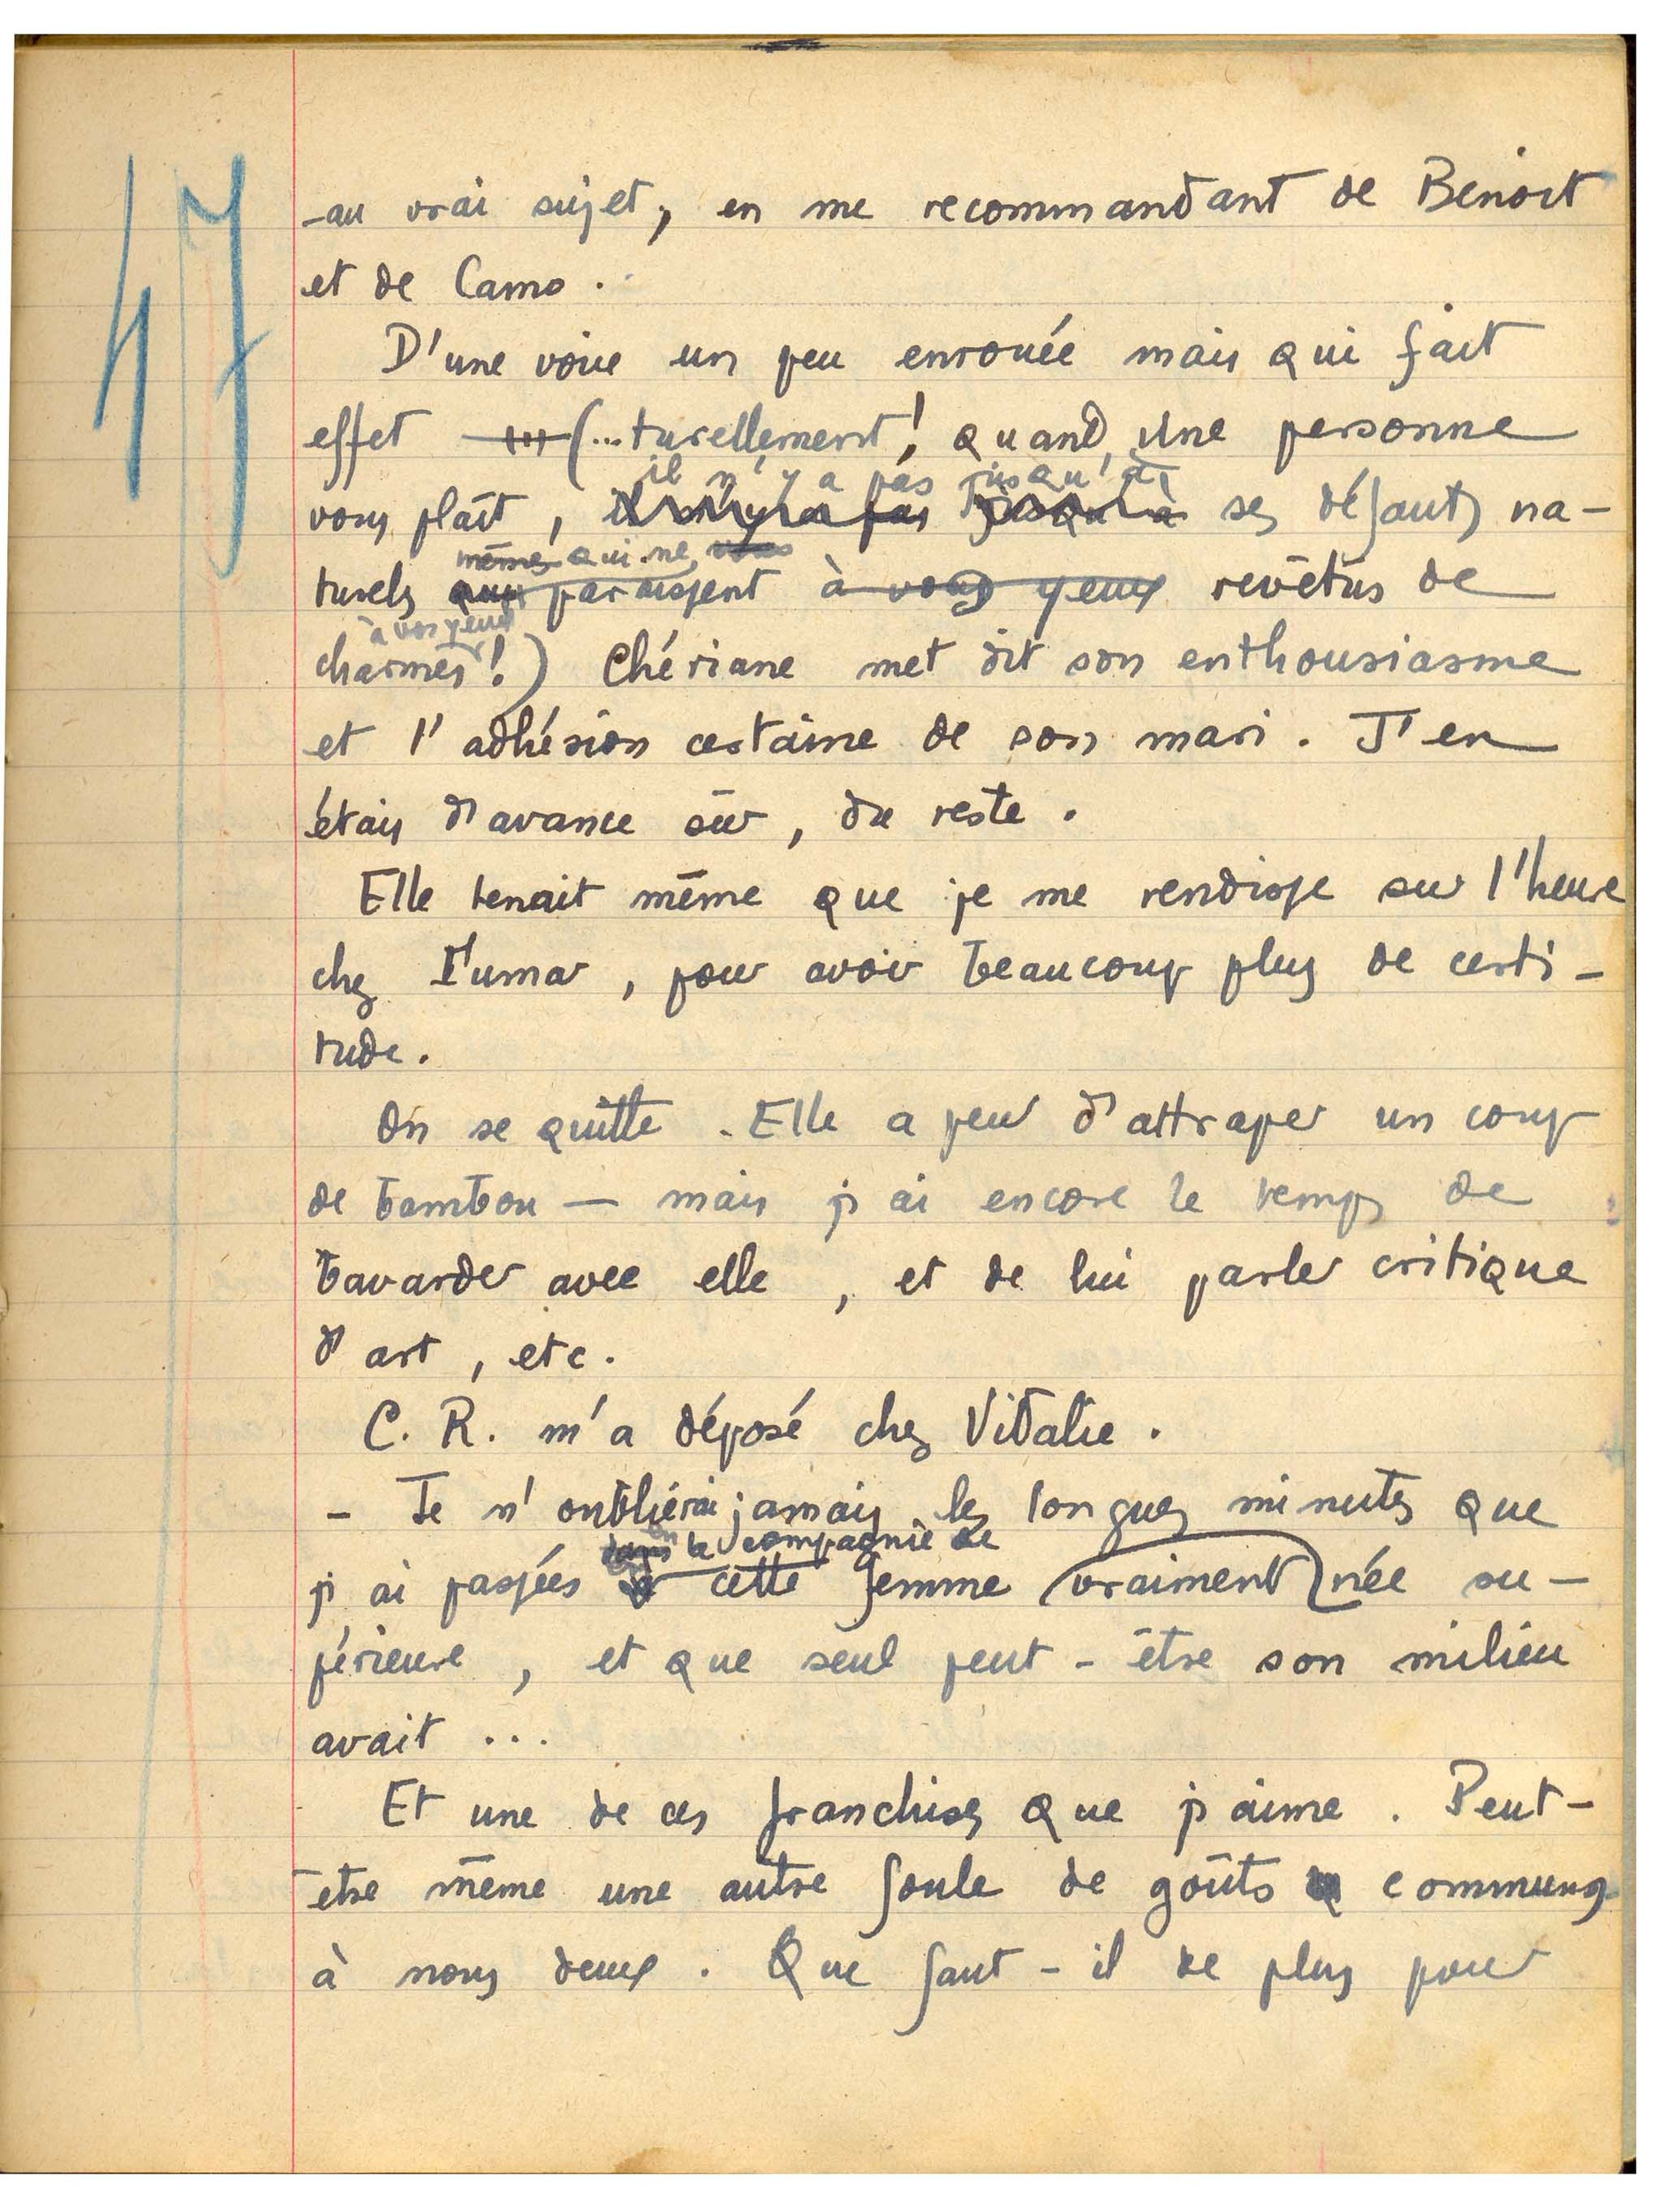 47
-au vrai sujet, en me recommandant de Benoit
et de Camo.
D'une voix un peu enrouée mais qui fait
effet (...turellement! quand une personne
il n'y a pas jusqu'à
vous plaît, il n'y a pas jusqu'à ses défauts na-
mêmes qui ne vous
turels qui paraissent à vos yeux revêtus de
à vos yeux
charmes!) Chériane met dit son enthousiasme
et l'adhésion certaine de son mari. J'en
étais d'avance sûr, du reste.
Elle tenait même que je me rendisse sur l'heure
chez Fumar, pour avoir beaucoup plus de certi-
tude.
On se quitte. Elle a peur d'attraper un coup
de bambou — mais j'ai encore le temps de
bavarder avec elle, et de lui parler critique
d'art, etc.
C. R. m'a déposé chez Vitalie.
- Je n'oublierai jamais les longues minutes que
dans la compagnie de
j'ai passées cette femme vraiment née su-
périeure, et que seul peut-être son milieu
avait ...
Et une de ces franchises que j'aime. Peut-
être même une autre foule de goûts communs
à nous deux. Que faut-il de plus pour